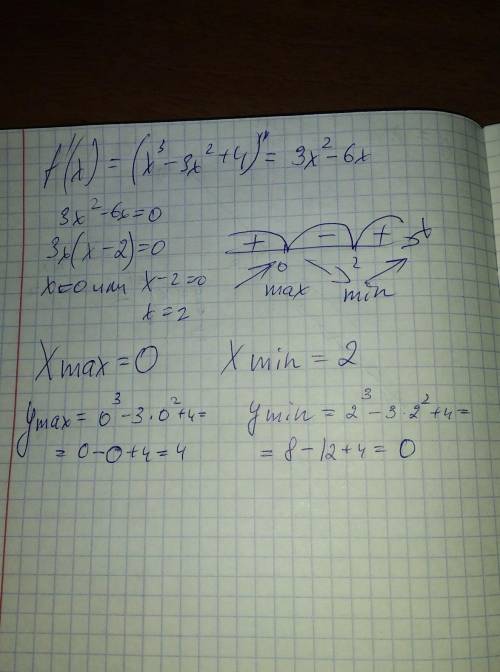 f'(x) = (x³ - 3x² + 4)' = 3x² - 6x
3x² - 6x = 0
3x(x - 2) = 0
x = 0 или x - 2 = 0
x = 2
+ - + x
0 2
max min
Xmax = 0 Xmin = 2
ymax = 0³ - 3·0² + 4 =
= 0 - 0 + 4 = 4
ymin = 2³ - 3·2² + 4 =
= 8 - 12 + 4 = 0